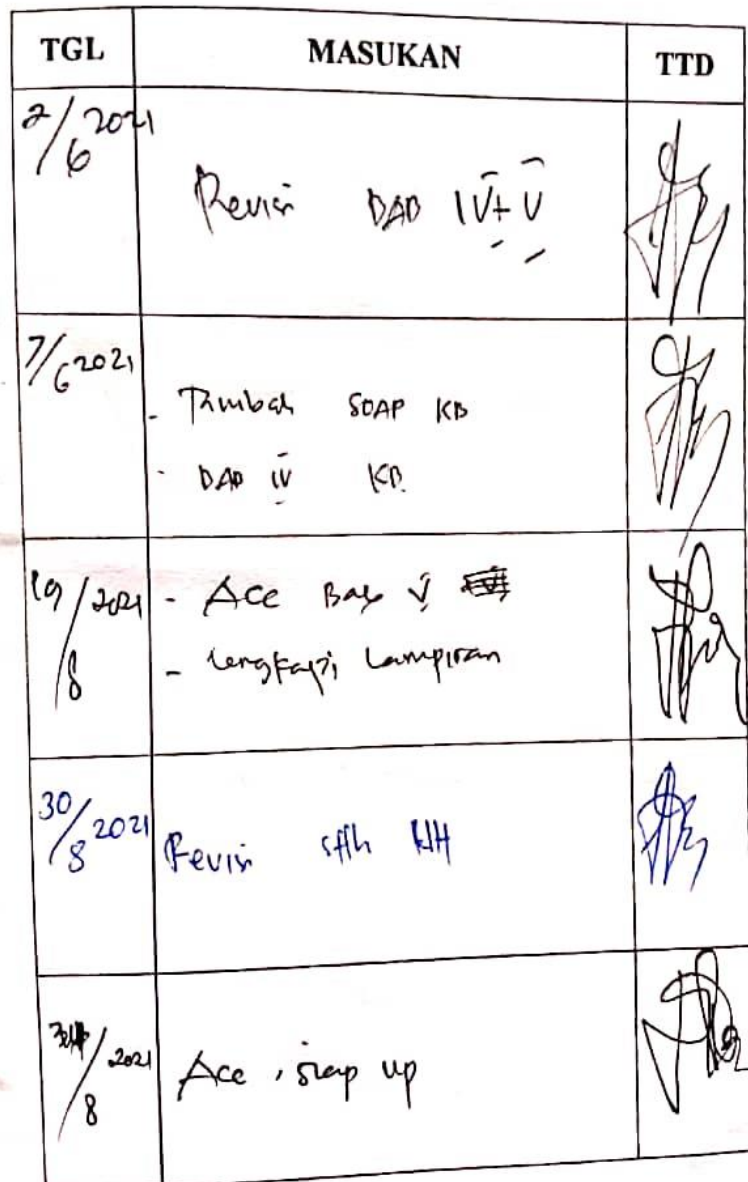 TGL MASUKAN TTD
2/6 2021
Revisi BAB IV + V
7/6 2021
- Tambah SOAP KB
- BAB IV KB
19/8 2021
- Acc Bab V
- lengkapi Lampiran
30/8 2021
Revisi
/8 2021
Acc, siap up